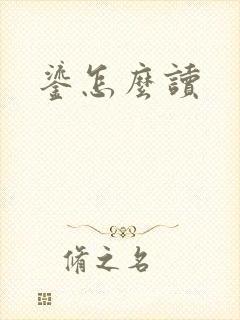 鎏怎麼讀
脩之名